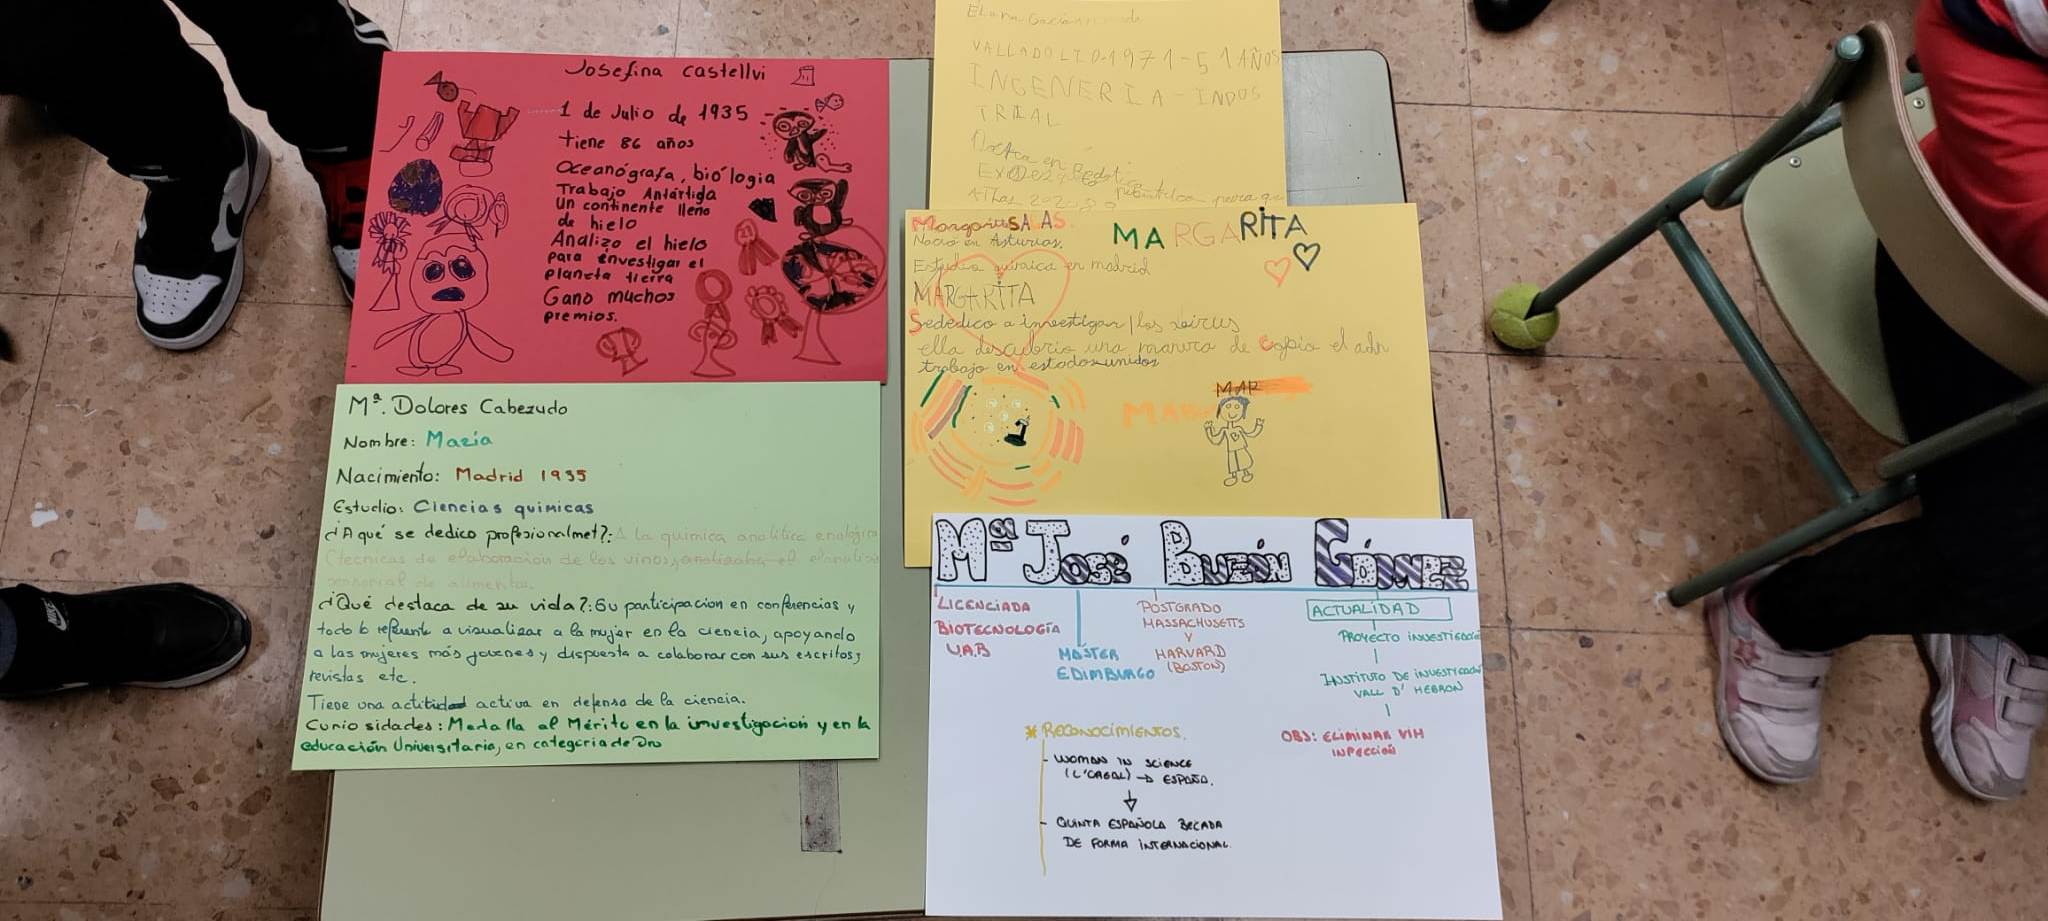 Josefina castellvi
1 de Julio de 1935
tiene 86 años
Oceanógrafa, biólogia
Trabajo Antártida
Un continente lleno
de hielo
Analizo el hielo
para investigar el
planeta tierra
Gano muchos
premios.
Mª. Dolores Cabezudo
Nombre: María
Nacimiento: Madrid 1935
Estudio: Ciencias quimicas
¿A qué se dedico profesionalmet?: A la quimica analitica enológica
(tecnicas de elaboracion de los vinos, analizaba el el analisis
sensorial de alimentos.
¿Qué destaca de su vida?: Su participacion en conferencias y
todo lo referente a visualizar a la mujer en la ciencia, apoyando
a las mujeres más jovenes y dispuesta a colaborar con sus escritos,
revistas etc.
Tiene una actitud activa en defensa de la ciencia.
Curiosidades: Medalla al Mérito en la investigacion y en la
educación Universitaria, en categoria de Oro
Elena García
VALLADOLID-1971-51 AÑOS
INGENERIA-INDUS
TRIAL
para que
Margarita SALAS.
MARGARITA
Nacio en Asturias.
Estudio quimica en madrid
MARGARITA
Se dedico a investigar los virus
ella descubrio una manera de copia el adn
trabajo en estados unidos
MAR
Mª José Buzón Gómez
LICENCIADA
BIOTECNOLOGÍA
U.A.B
MÁSTER
EDIMBURGO
POSTGRADO
MASSACHUSETTS
Y
HARVARD
(BOSTON)
ACTUALIDAD
PROYECTO INVESTIGACIÓN
INSTITUTO DE INVESTIGACIÓN
VALL D'HEBRON
OBJ: ELIMINAR VIH
INFECCIÓN
* RECONOCIMIENTOS.
- WOMAN IN SCIENCE
(L'OREAL) → ESPAÑA.
- QUINTA ESPAÑOLA BECADA
DE FORMA INTERNACIONAL.